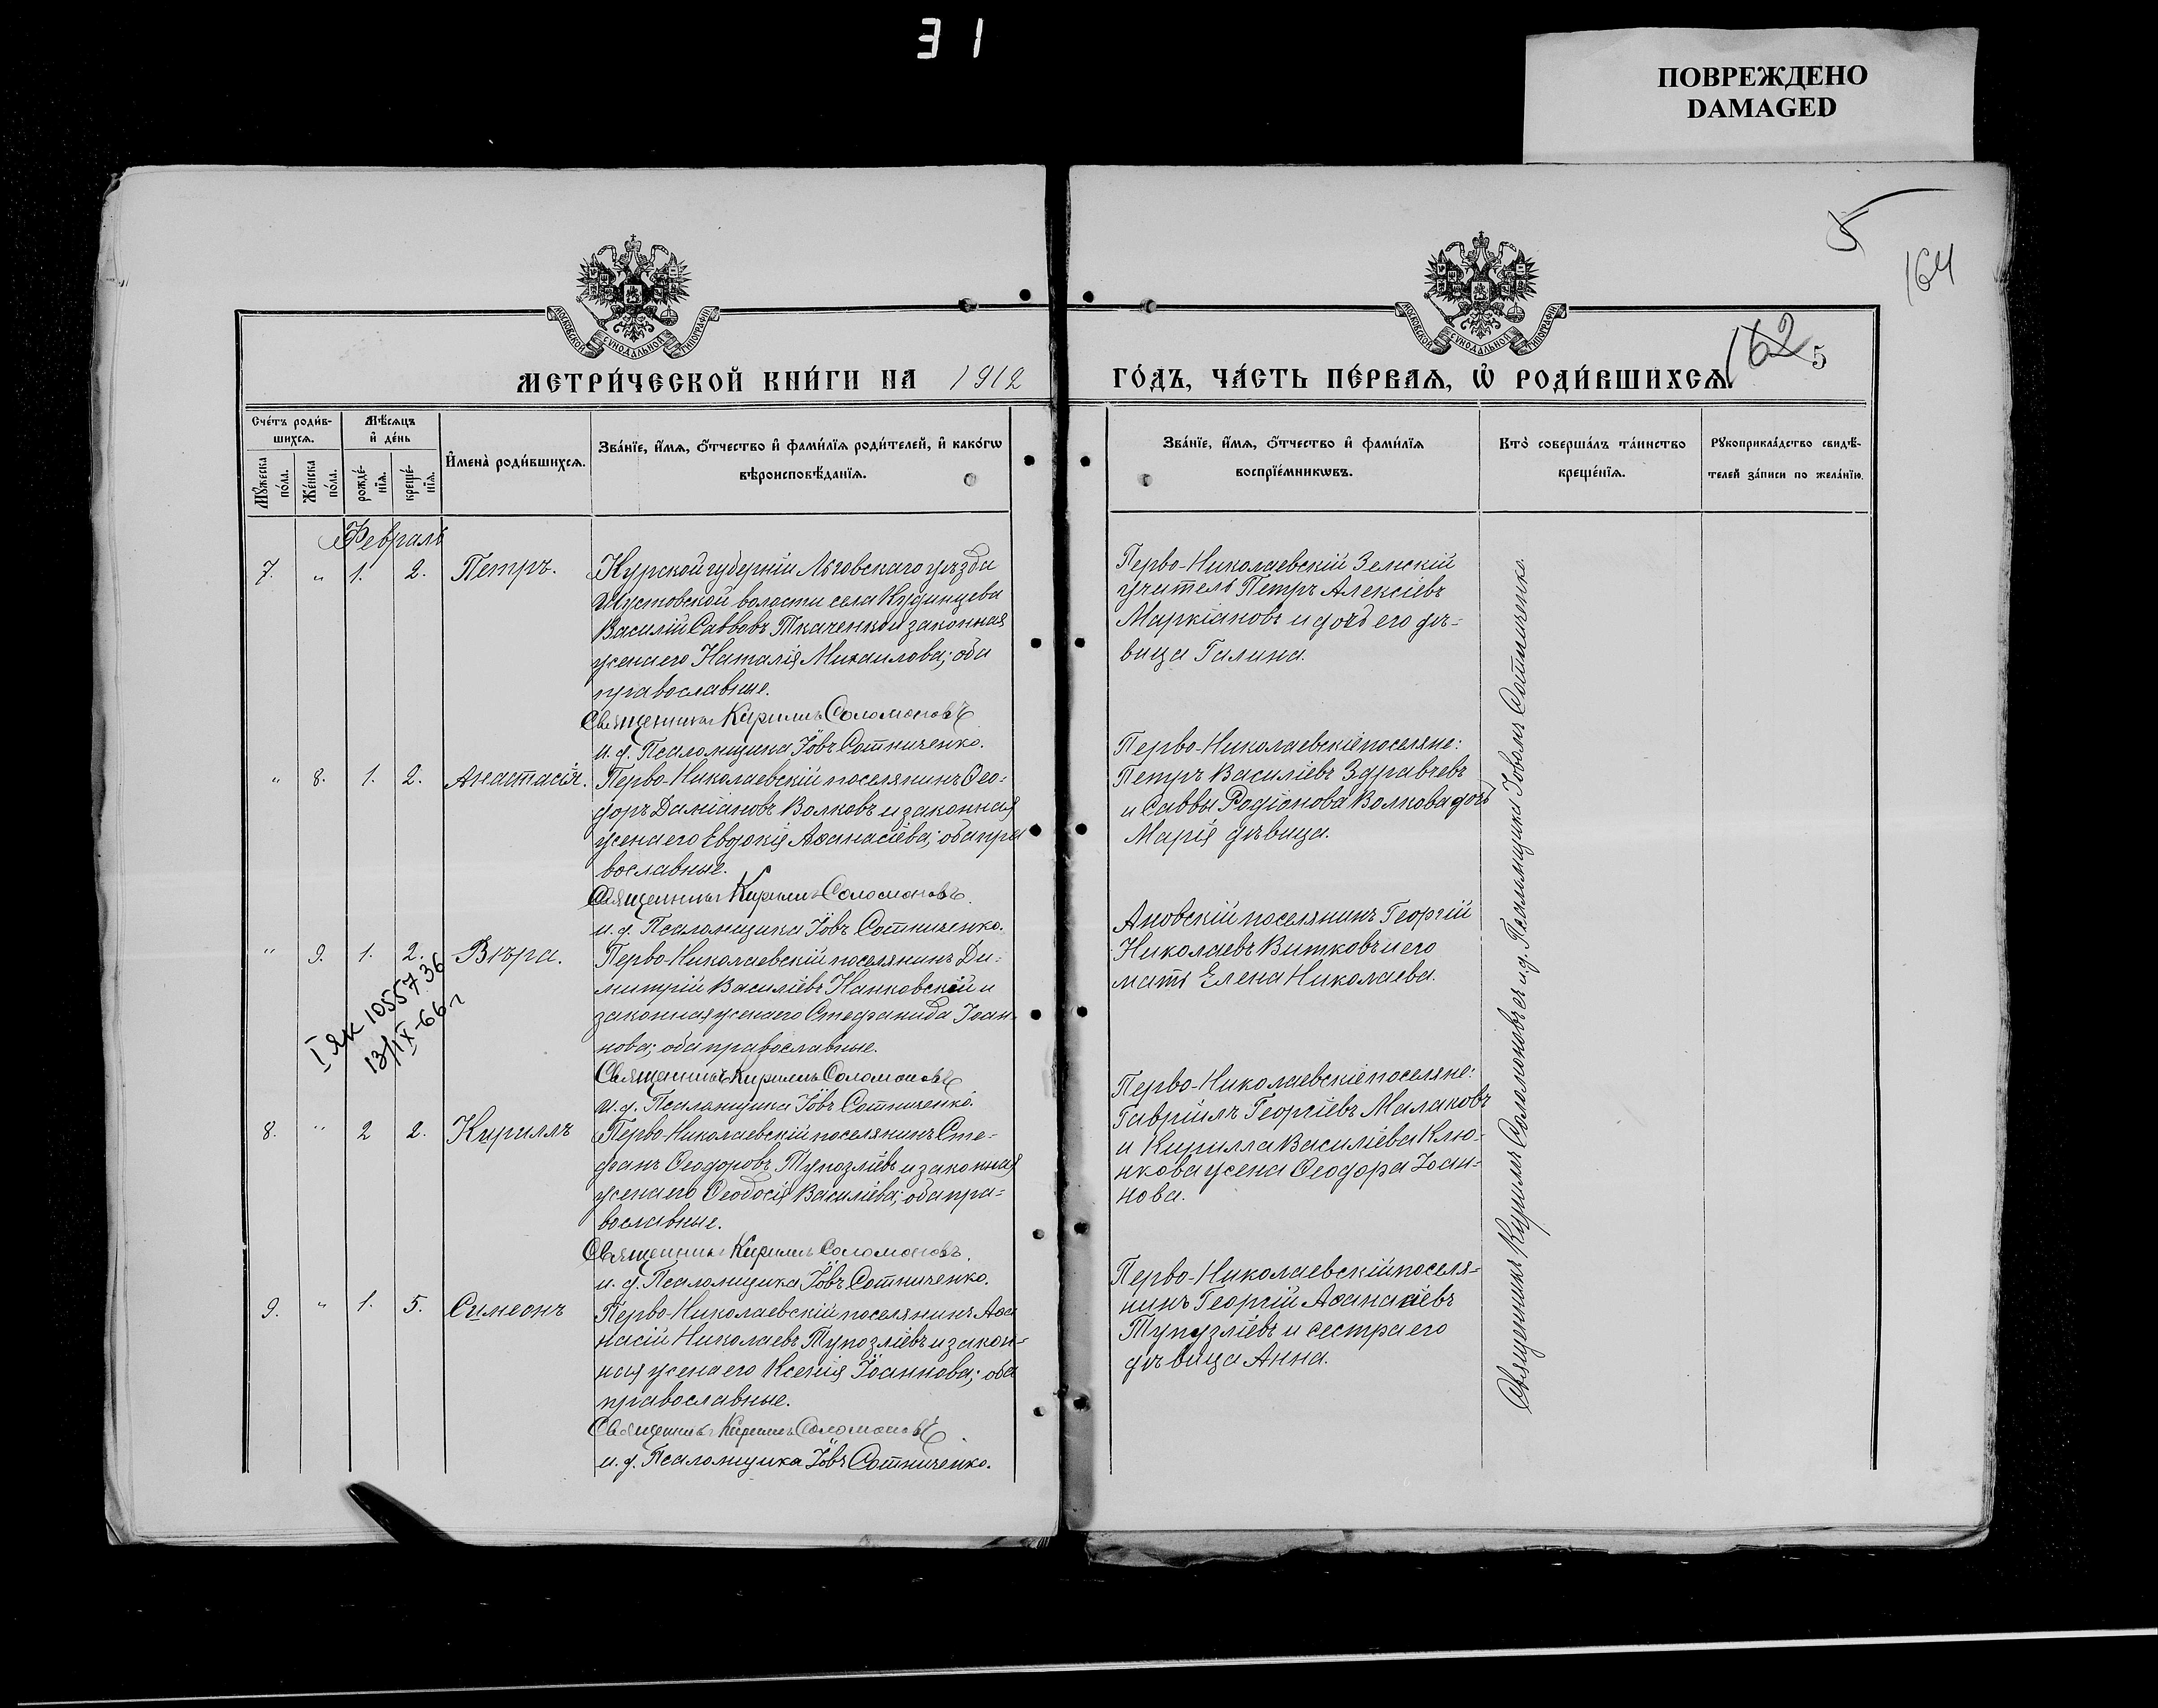 31
ПОВРЕЖДЕНО
DAMAGED
5
164
162
5
МОСКОВСКОЙ СѴНОДАЛЬНОЙ ТИПОГРАФІИ
МОСКОВСКОЙ СѴНОДАЛЬНОЙ ТИПОГРАФІИ
МЕТРИ́ЧЕСКОЙ КНИ́ГИ НА 1912
ГО́ДЪ, ЧА́СТЬ ПЕ́РВАѦ, Ѡ҆ РОДИ́ВШИХСѦ.
Сче́тъ роди́в-
шихсѧ.
Мѣ́сѧцъ
и҆ де́нь
Мꙋ́жеска
по́ла.
Же́нска
по́ла.
рожде́-
нїѧ.
креще́-
нїѧ.
И҆мена̀ роди́вшихсѧ.
Зва́нїе, и҆́мѧ, ѻ҆́тчество и҆ фами́лїѧ роди́телей, и҆ како́гѡ
вѣроисповѣ́данїѧ.
Зва́нїе, и҆́мѧ, ѻ҆́тчество и҆ фами́лїѧ
воспрїе́мникѡвъ.
Кто̀ соверша́лъ та́инство
креще́нїѧ.
Рꙋкоприкла́дство свидѣ́-
телей за́писи по жела́нїю.
Февраль
7. " 1. 2. Петръ.
Курской губерніи Льговскаго уѣзда
Шустовской волости села Кудинцева
Василій Саввовъ Ткаченко и законная
жена его Наталія Михаилова; оба
православные.
Священникъ Кириллъ Соломоновъ
и. д. Псаломщика Іовъ Сотниченко.
Перво-Николаевскій Земскій
учитель Петръ Алексіевъ
Маркіановъ и дочь его дѣ-
вица Галина.
" 8. 1. 2. Анастасія.
Перво-Николаевскій поселянинъ Ѳео-
доръ Даміановъ Волковъ и законная
жена его Евдокія Аѳанасіева; оба пра
вославные.
Священникъ Кириллъ Соломоновъ.
и. д. Псаломщика Іовъ Сотниченко.
Перво-Николаевскіе поселяне:
Петръ Василіевъ Здравчевъ
и Саввы Родіонова Волкова дочь
Марія дѣвица.
" 9. 1. 2. Вѣра.
I ЯК 1055736
13/IX-66 г
Перво-Николаевскій поселянинъ Ди-
митрій Василіевъ Нанковскій и
законная жена его Стефанида Іоан-
нова; оба православные.
Священникъ Кириллъ Соломоновъ
и. д. Псаломщика Іовъ Сотниченко.
Ановскій поселянинъ Георгій
Николаевъ Витковъ и его
мать Елена Николаева.
8. " 2 2. Кириллъ
Перво-Николаевскій поселянинъ Сте-
фанъ Ѳеодоровъ Тупозліевъ и законная
жена его Ѳеодосія Василіева; оба пра-
вославные.
Священникъ Кириллъ Соломоновъ.
и. д. Псаломщика Іовъ Сотниченко.
Перво-Николаевскіе поселяне:
Гавріилъ Георгіевъ Малаковъ
и Кирилла Василіева Клю-
нкова жена Ѳеодора Іоан-
нова.
9. " 1. 5. Симеонъ
Перво-Николаевскій поселянинъ Аѳа
насій Николаевъ Тупозліевъ и закон-
ная жена его Ксенія Іоаннова; оба
православные.
Священникъ Кириллъ Соломоновъ.
и. д. Псаломщика Іовъ Сотниченко.
Перво-Николаевскій поселя-
нинъ Георгій Аѳанасіевъ
Тупузліевъ и сестра его
дѣвица Анна.
Священникъ Кириллъ Соломоновъ съ и.д. Псаломщика Іовомъ Сотниченко.